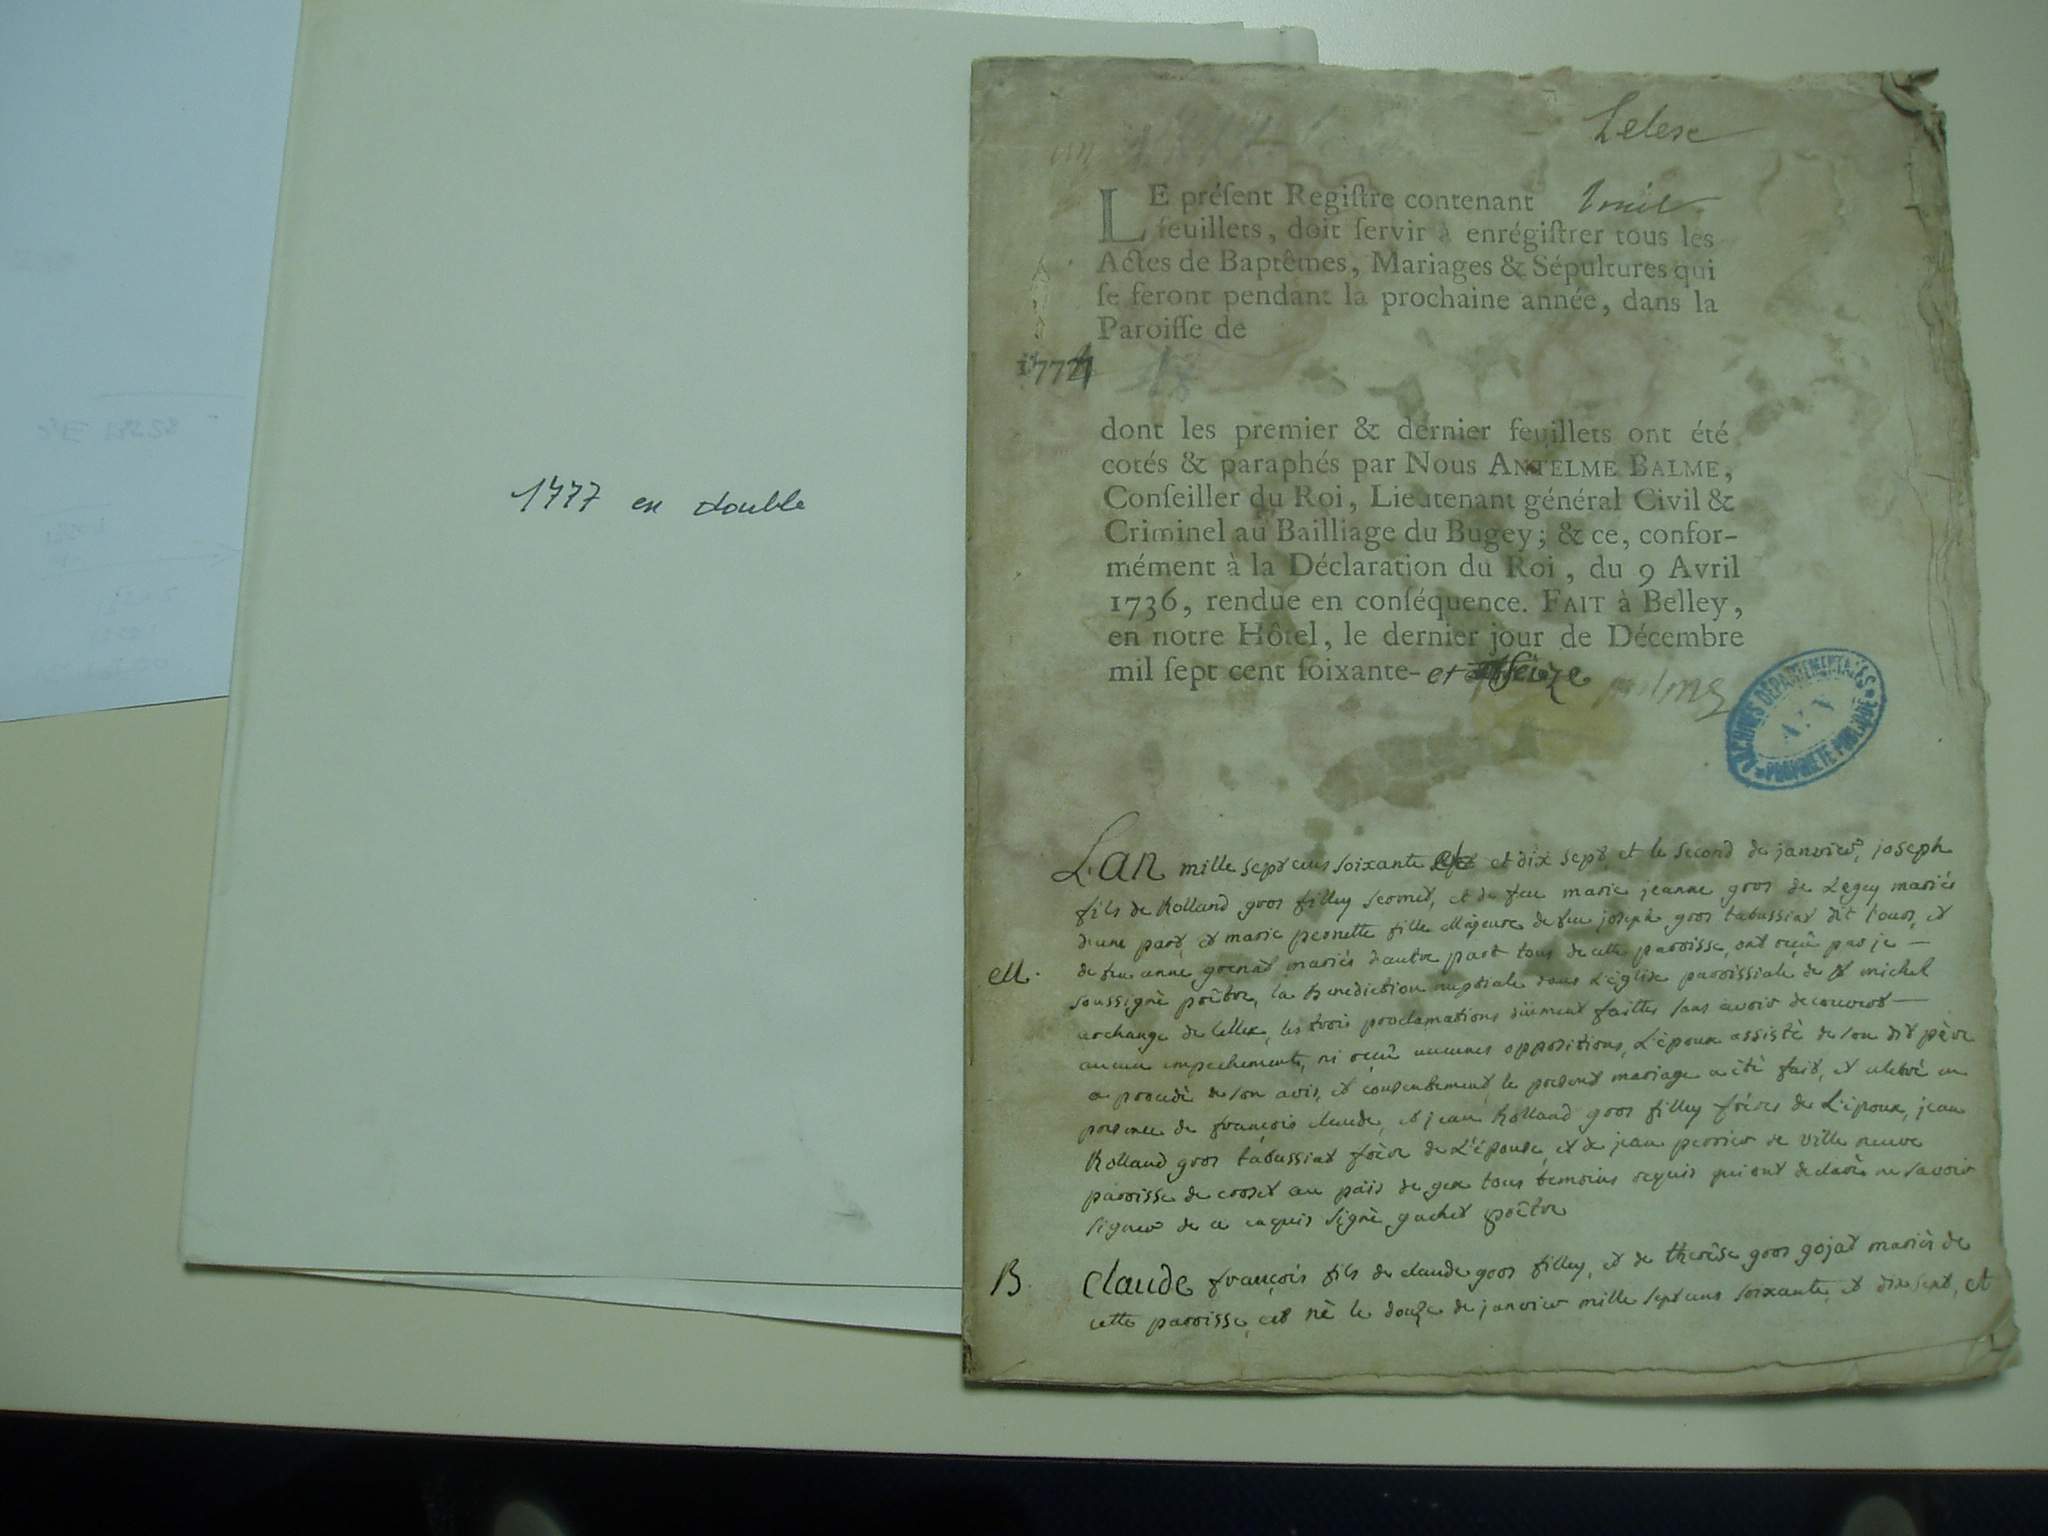 1777 en double
Lelex
LE préſent Regiſtre contenant
feuillets, doit ſervir à enrégiſtrer tous les
Actes de Baptêmes, Mariages & Sépultures qui
ſe feront pendant la prochaine année, dans la
Paroiſſe de
1777
dont les premier & dernier feuillets ont été
cotés & paraphés par Nous ANTELME BALME,
Conſeiller du Roi, Lieutenant général Civil &
Criminel au Bailliage du Bugey; & ce, confor-
mément à la Déclaration du Roi, du 9 Avril
1736, rendue en conſéquence. FAIT à Belley,
en notre Hôtel, le dernier jour de Décembre
mil ſept cent ſoixante- et seize
ARCHIVES DÉPARTEMENTALES
AIN
PROPRIÉTÉ PUBLIQUE
L'an mille sept cens soixante et dix sept, et le second de janvier, joseph
fils de Rolland gros filley , et de feu marie jeanne gros de Legey mariés
d'une part, et marie pernette fille Majeure de feu joseph gros tabussiat dit , et
de feu anne grenat mariés d'autre part tous de cette paroisse, ont reçû par je
M.
soussigné prêtre, la Benediction nuptiale dans L'église paroissiale de st michel
archange de Lellex, les trois proclamations düement faittes sans avoir decouvert
aucun empechement, ni reçû aucunes oppositions, L'époux assisté de son dit père
a procedé de son avis, et consentement, le present mariage a été fait, et celebré en
presence de françois claude, et jean Rolland gros filley frères de L'époux, jean
Rolland gros tabussiat frère de L'épouse, et de jean perrier de ville neuve
paroisse de crozet au païs de gex tous temoins requis qui ont declaré ne savoir
signer de ce enquis signé gachet prêtre
B. Claude françois fils de claude gros filley, et de therèse gros gojat mariés de
cette paroisse, est né le douze de janvier mille sept cens soixante et dix sept, et